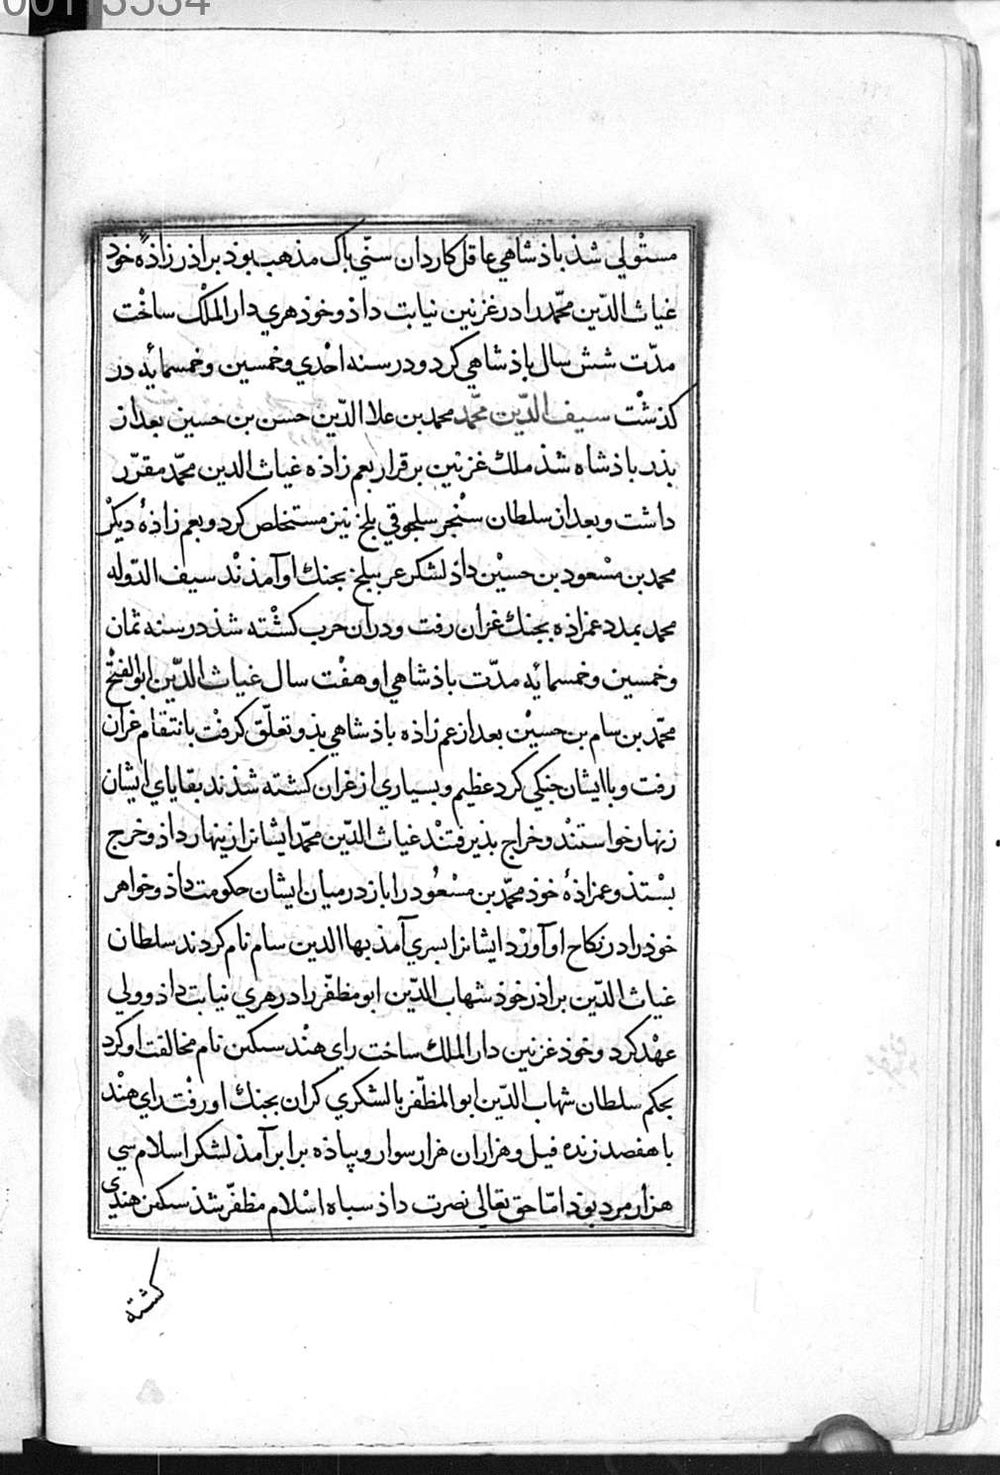 00113534
مستولی شذ باذشاهی عاقل کاردان سنّی باک مذهب بوذ براذر زاذهٔ خوذ
غیاث الدّین محمّد را در غزنین نیابت داذ و خوذ هری دار الملک ساخت
مدّت شش سال باذشاهی کرد و در سنه احدی و خمسین و خمسمائه در
کذشت سیف الدّین محمّد محمد بن علا الدّین حسن بن حسین بعد از
بذر باذشاه شذ ملک غزنین برقرار بعم زاذه غیاث الدین محمّد مقرّر
داشت و بعد از سلطان سنجر سلجوقی بلخ نیز مستخلص کرد و بعم زاذهٔ دیکر
محمد بن مسعود بن حسین داذ لشکر غر ببلخ بجنک او آمذند سیف الدّوله
محمد بمدد عمزاذه بجنک غزان رفت و دران حرب کشته شذ در سنه ثمان
و خمسین و خمسمائه مدّت باذشاهی او هفت سال غیاث الدّین ابو الفتح
محمّد بن سام بن حسین بعد از عم زاذه باذشاهی بذو تعلّق کرفت بانتقام غزان
رفت و با ایشان جنکی کرد عظیم و بسیاری از غزان کشته شذند بقایای ایشان
زنهار خواستند و خراج بذیرفتند غیاث الدّین محمّد ایشانرا زینهار داذ و خرج
بستذ و عمزاذهٔ خوذ محمّد بن مسعود را باز در میان ایشان حکومت داذ و خواهر
خوذ را در نکاح او آورد ایشانرا بسری آمذ بها الدین سام نام کردند سلطان
غیاث الدّین براذر خوذ شهاب الدّین ابو مظفّر را در هری نیابت داذ و ولی
عهد کرد و خوذ غزنین دار الملک ساخت رای هند سکن نام مخالفت او کرد
بحکم سلطان شهاب الدّین ابو المظفّر با لشکری کران بجنک او رفت رای هند
با هفصد زنده فیل و هزاران هزار سوار و پیاذه برابر آمذ لشکر اسلام سی
هزار مرد بوذ امّا حق تعالی نصرت داذ سباه اسلام مظفّر شذ سکن هندی
کشته